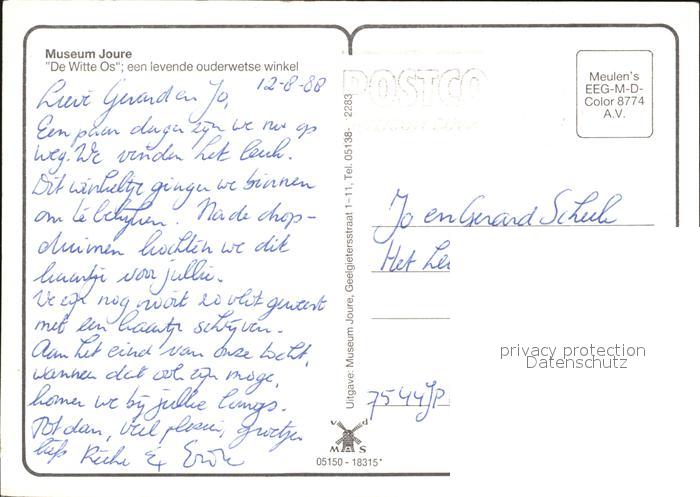 Museum Joure
"De Witte Os"; een levende ouderwetse winkel
12-8-88
Lieve Gerard en Jo,
Een paar dagen zijn we nu op
weg. We vinden het leuk.
Dit winkeltje gingen we binnen
om te bekijken. Na de drop-
duimen kochten we dit
kaartje voor jullie.
We zijn nog nooit zo vlot geweest
met een kaartje schrijven.
Aan het eind van onze tocht,
wanneer dat ook zijn moge,
komen we bij jullie langs.
Tot dan, veel plezier, groetjes
liefs
Uitgave: Museum Joure, Geelgietersstraat 1-11, Tel. 05138- 2283
POSTCO
Meulen's
EEG-M-D-
Color 8774
A.V.
Jo en Gerard
Het
7544JP
v d
M S
05150 - 18315*
privacy protection
Datenschutz